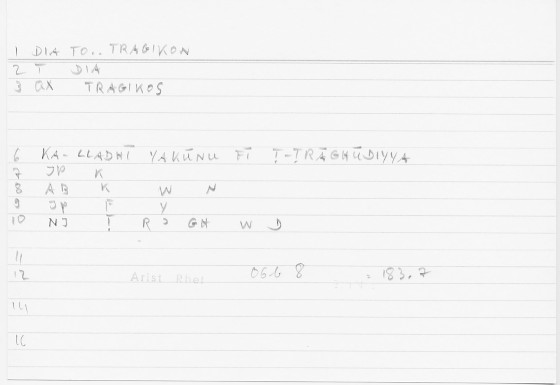 1 DIA TO.. TRAGIKON
2 T DIA
3 aX TRAGIKOS
6 KA-LLADHĪ YAKŪNU FĪ Ṭ-ṬRĀGHŪDIYYA
7 JP K
8 AB K W N
9 JP F Y
10 NJ Ṭ R GH W D
11
12 Arist Rhet 06.6 8 183.7
14
16